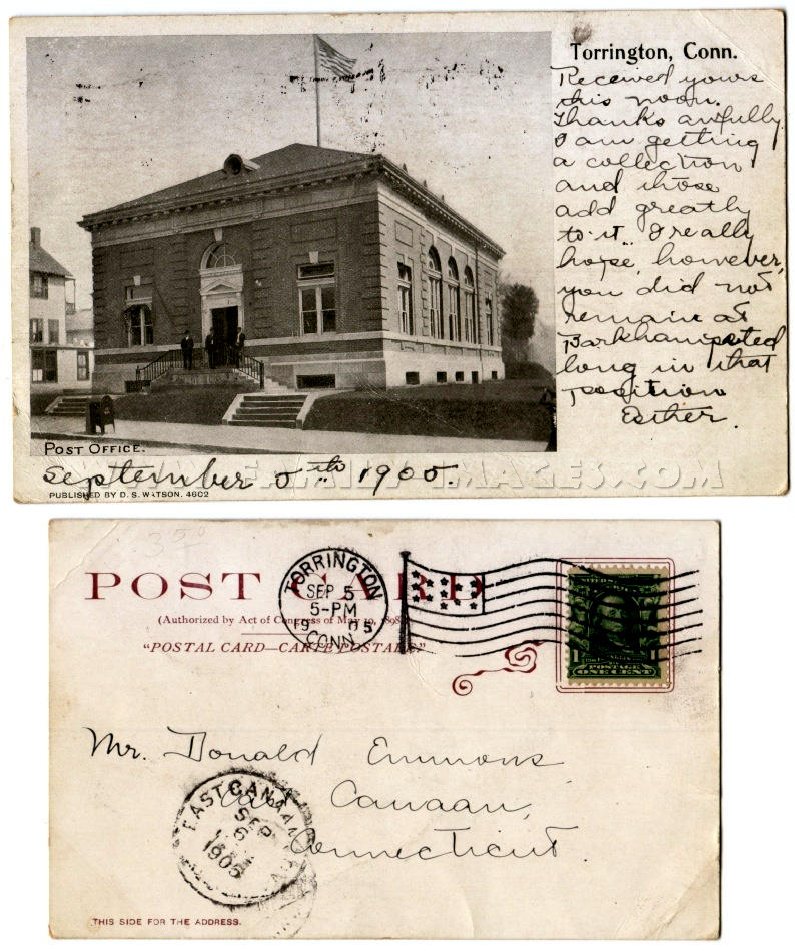 Torrington, Conn.
Received yours
this noon.
Thanks awfully
I am getting
a collection
and those
add greatly
to it. I really
hope, however,
you did not
remain at
Barkhampsted
long in that
position
Esther.
POST OFFICE.
September 5th 1905.
WWW.FAMILY-IMAGES.COM
PUBLISHED BY D. S. WATSON. 4602
POST CARD
(Authorized by Act of Congress of May 19, 1898.)
"POSTAL CARD—CARTE POSTALE"
TORRINGTON
SEP 5
5-PM
19 05
CONN.
POSTAGE
ONE CENT
Mr. Donald Emmons
East Canaan,
Connecticut.
EAST CANAAN
SEP
6
1905
THIS SIDE FOR THE ADDRESS.